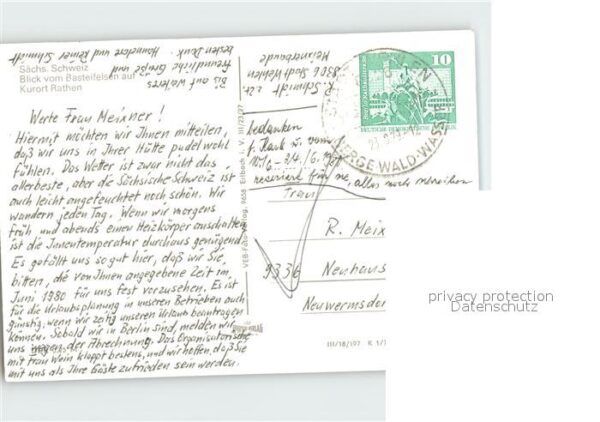 Sächs. Schweiz
Blick vom Basteifelsen auf
Kurort Rathen
Werte Frau Meixner!
Hiermit möchten wir Ihnen mitteilen,
daß wir uns in Ihrer Hütte pudelwohl
fühlen. Das Wetter ist zwar nicht das
allerbeste, aber die Sächsische Schweiz ist
auch leicht angefeuchtet noch schön. Wir
wandern jeden Tag. Wenn wir morgens
früh und abends einen Heizkörper anschalten,
ist die Innentemperatur durchaus genügend.
Es gefällt uns so gut hier, daß wir Sie,
bitten, die von Ihnen angegebene Zeit im
Juni 1980 für uns fest vorzusehen. Es ist
für die Urlaubsplanung in unseren Betrieben auch
günstig, wenn wir zeitig unseren Urlaub beantragen
können. Sobald wir in Berlin sind, melden wir
uns wegen der Abrechnung. Das Organisatorische
mit Frau Wein klappt bestens, und wir hoffen, daß Sie
mit uns als Ihre Gäste zufrieden sein werden.
Bis auf weiteres
freundliche Grüße und
besten Dank Hannelore und Reiner Schmidt
R. Schmidt z. Zt.
8306 Stadt Wehlen
10
DEUTSCHE DEMOKRATISCHE REPUBLIK
bedanken
reserviert für sie, alles noch
Frau
R. Meix
9336 Neuhaus
Neuwermsdor
III/18/197 K 1/7
privacy protection
Datenschutz